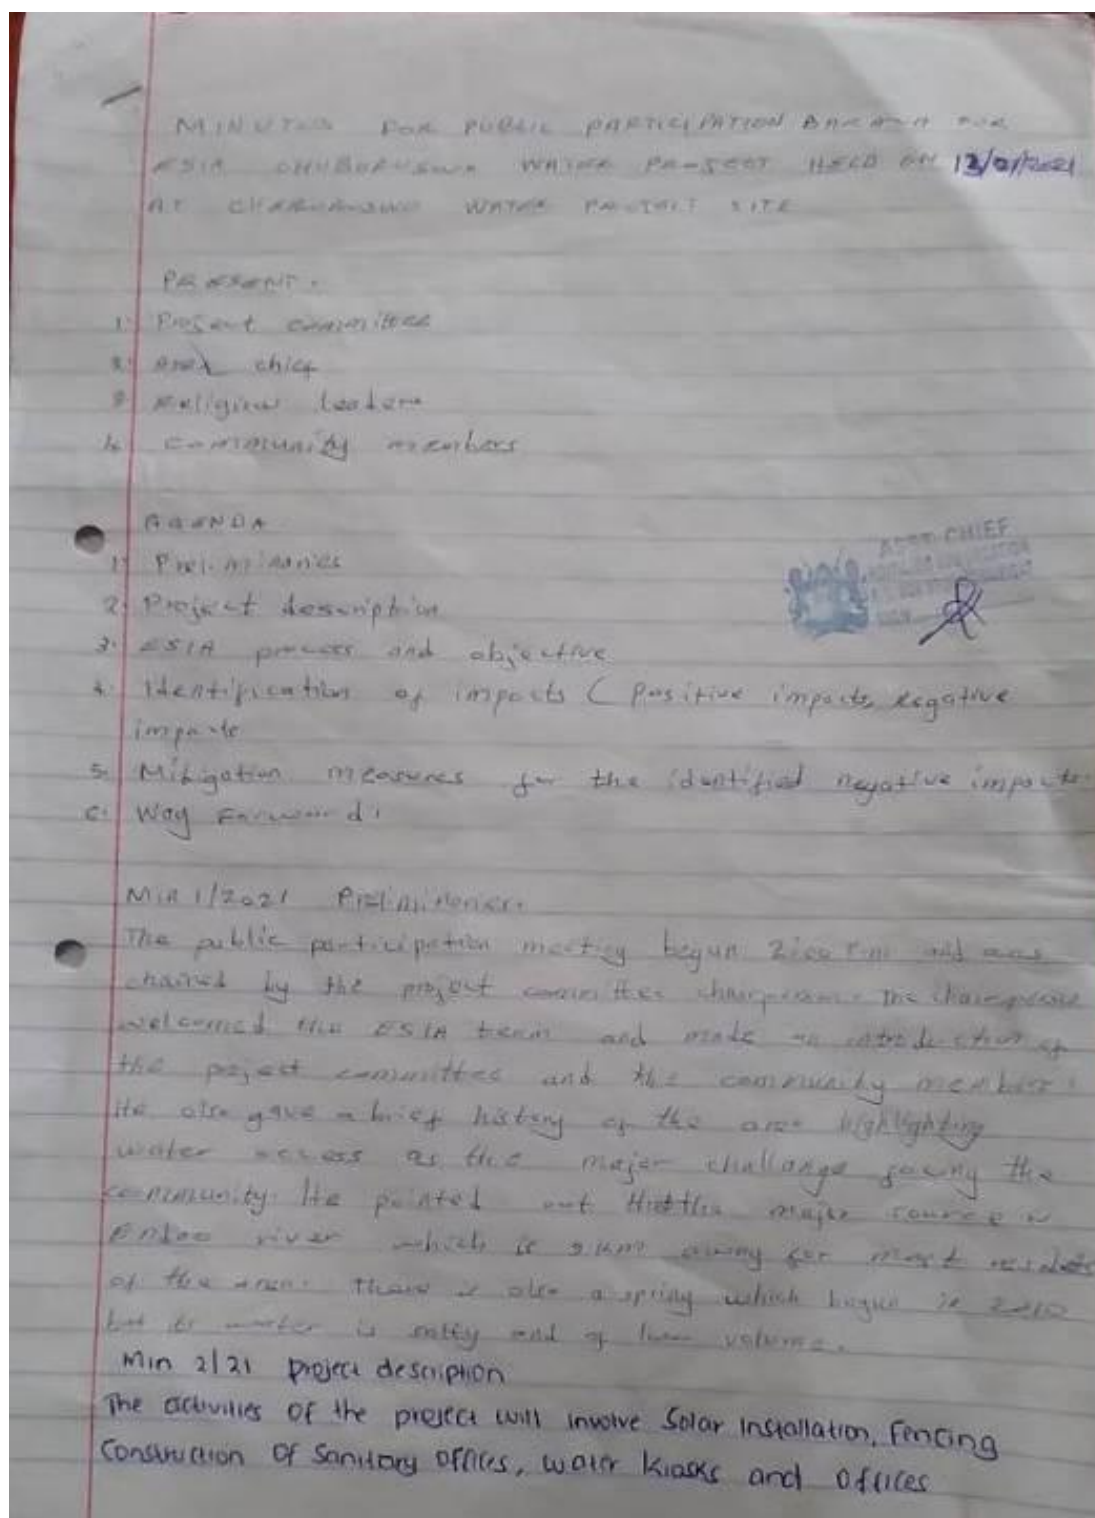 MINUTES FOR PUBLIC PARTICIPATION BARAZA FOR
ESIA WATER PROJECT HELD ON
AT WATER PROJECT SITE
PRESENT.
1. Project committee
2. Area chief
3. Religious leaders
4. Community members
AGENDA
1. Preliminaries
2. Project description
3. ESIA process and objective
4. Identification of impacts ( Positive impacts, negative
impacts
5. Mitigation measures for the identified negative impacts
6. Way Forward.
ASST CHIEF
Min 1/2021 Preliminaries.
The public participation meeting begun 2:00 P.m and was
chaired by the project committee chairperson. The chairperson
welcomed the ESIA team and made an introduction of
the project committee and the community members.
He also gave a brief history of the area highlighting
water access as the major challenge facing the
community. He pointed out that the major source is
river which is 9 km away for most residents
of the area. There is also a spring which begun in 2010
but its water is salty and of low volume.
Min 2/21 project description
The activities of the project will involve Solar Installation, Fencing
Construction Of Sanitary Offices, water Kiosks and Offices